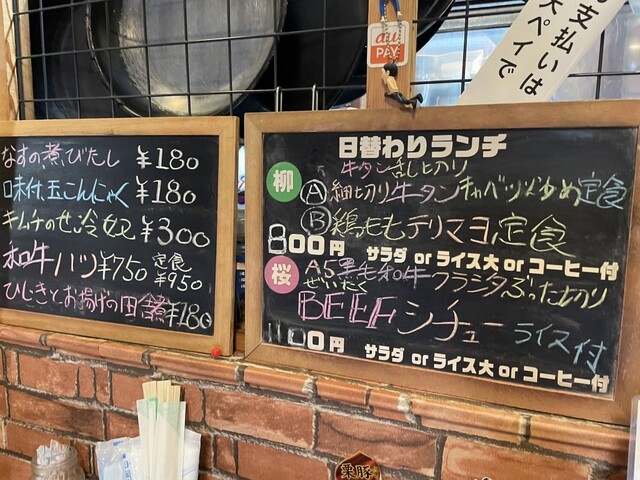 支払いは
ペイで
au
PAY
なすの煮びたし ¥180
味付玉こんにゃく ¥180
キムチのせ冷奴 ¥300
和牛ハツ ¥750 定食¥950
ひじきとお揚げの田舎煮 ¥180
日替わりランチ
牛タン乱切り
柳 Ⓐ細切り牛タンキャベツ炒め定食
Ⓑ鶏ももテリマヨ定食
800円 サラダ or ライス大 or コーヒー付
桜 A5黒毛和牛クラシタぶった切り
ぜいたく
BEEFシチュー ライス付
1100円 サラダ or ライス大 or コーヒー付
栗豚